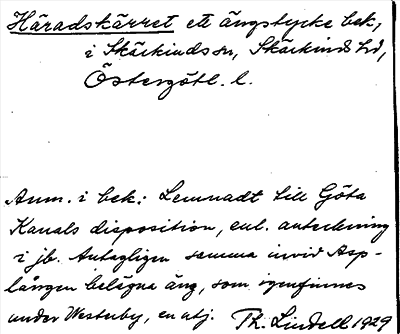 Häradskärret ett ängstycke bek,
i Skärkinds sn, Skärkinds hd,
Östergötl. l.
Anm. i bek: Lemnadt till Göta
Kanals disposition, enl. anteckning
i jb. Antagligen samma invid Asp-
lången belägna äng, som igenfinnes
under Westerby, en utj. Th. Lindell 1929